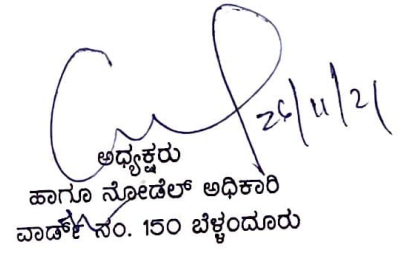 26/11/21
ಅಧ್ಯಕ್ಷರು
ಹಾಗೂ ನೋಡೆಲ್ ಅಧಿಕಾರಿ
ವಾರ್ಡ್ ಸಂ. 150 ಬೆಳ್ಳಂದೂರು